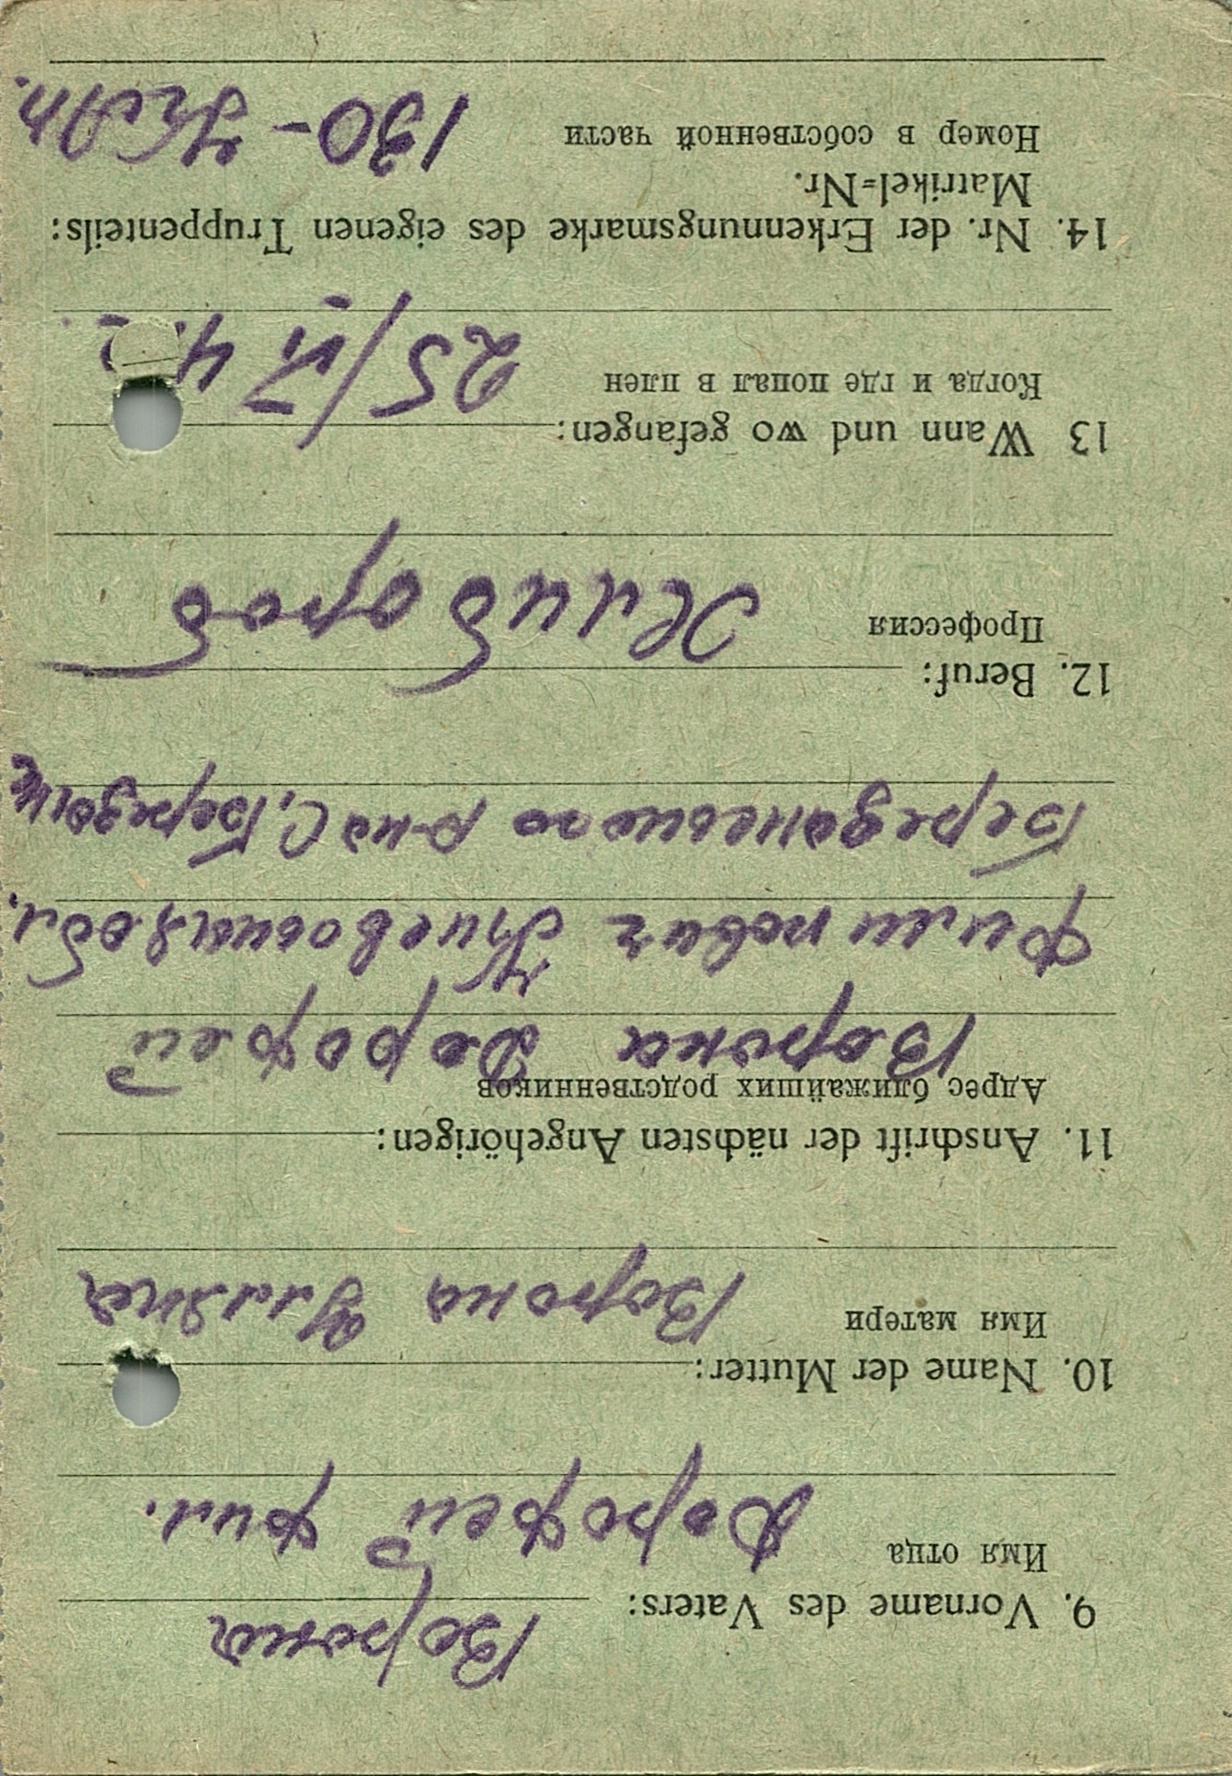 Ворона
9. Vorname des Vaters:
Имя отца
Дорофей Фил.
10. Name der Mutter:
Имя матери
Ворона Уляна
11. Anschrift der nächsten Angehörigen:
Адрес ближайших родственников
Ворона Дорофей
Филипович Киевская обл.
р-на С.
12. Beruf:
Профессия
Хлибороб
13 Wann und wo gefangen:
Когда и где попал в плен
25/VI 42.
14. Nr. der Erkennungsmarke des eigenen Truppenteils:
Matrikel=Nr.
Номер в собственной части
130 -